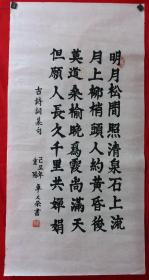 明月松間照清泉石上流
月上柳梢頭人約黃昏後
莫道桑榆晚爲霞尚滿天
但願人長久千里共嬋娟
古詩詞集句
己丑年
重陽
書